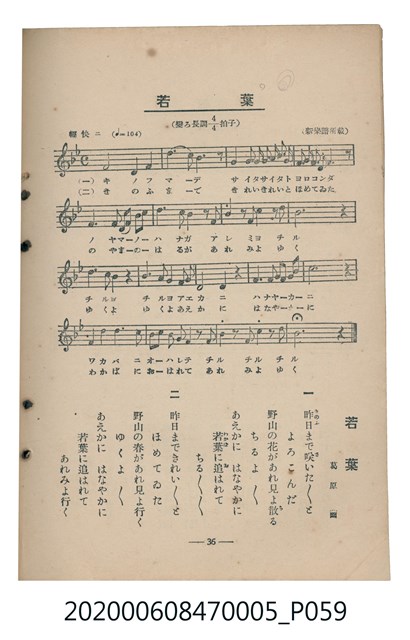 若葉
(變ろ長調 4/4 拍子)
(新樂譜所載)
輕快ニ (♩=104)
(一) キ ノフ マーデ サイタサイタト ヨロコンダ
(二) きのふまーで きれいきれいと ほめてゐた
ノヤマーノーハ ナガ アレ ミヨ チル
のやまーのーは るが あれ みよ ゆく
チルヨ チルヨアエカニ ハナヤーカーニ
ゆくよ ゆくよあえかに はなやーかーに
ワカバ ニオーハレテ チル チルチル
わかば におーはれて あれ みよ ゆく
若葉
葛原 𦱳
一 昨日まで咲いた〱と
よろこんだ
野山の花があれ見よ散る
ちるよ〱
あえかに はなやかに
若葉に追はれて
ちる〱〱
二 昨日まできれい〱と
ほめてゐた
野山の春があれ見よ行く
ゆくよ〱
あえかに はなやかに
若葉に追はれて
あれみよ行く
— 36 —
202000608470005_P059